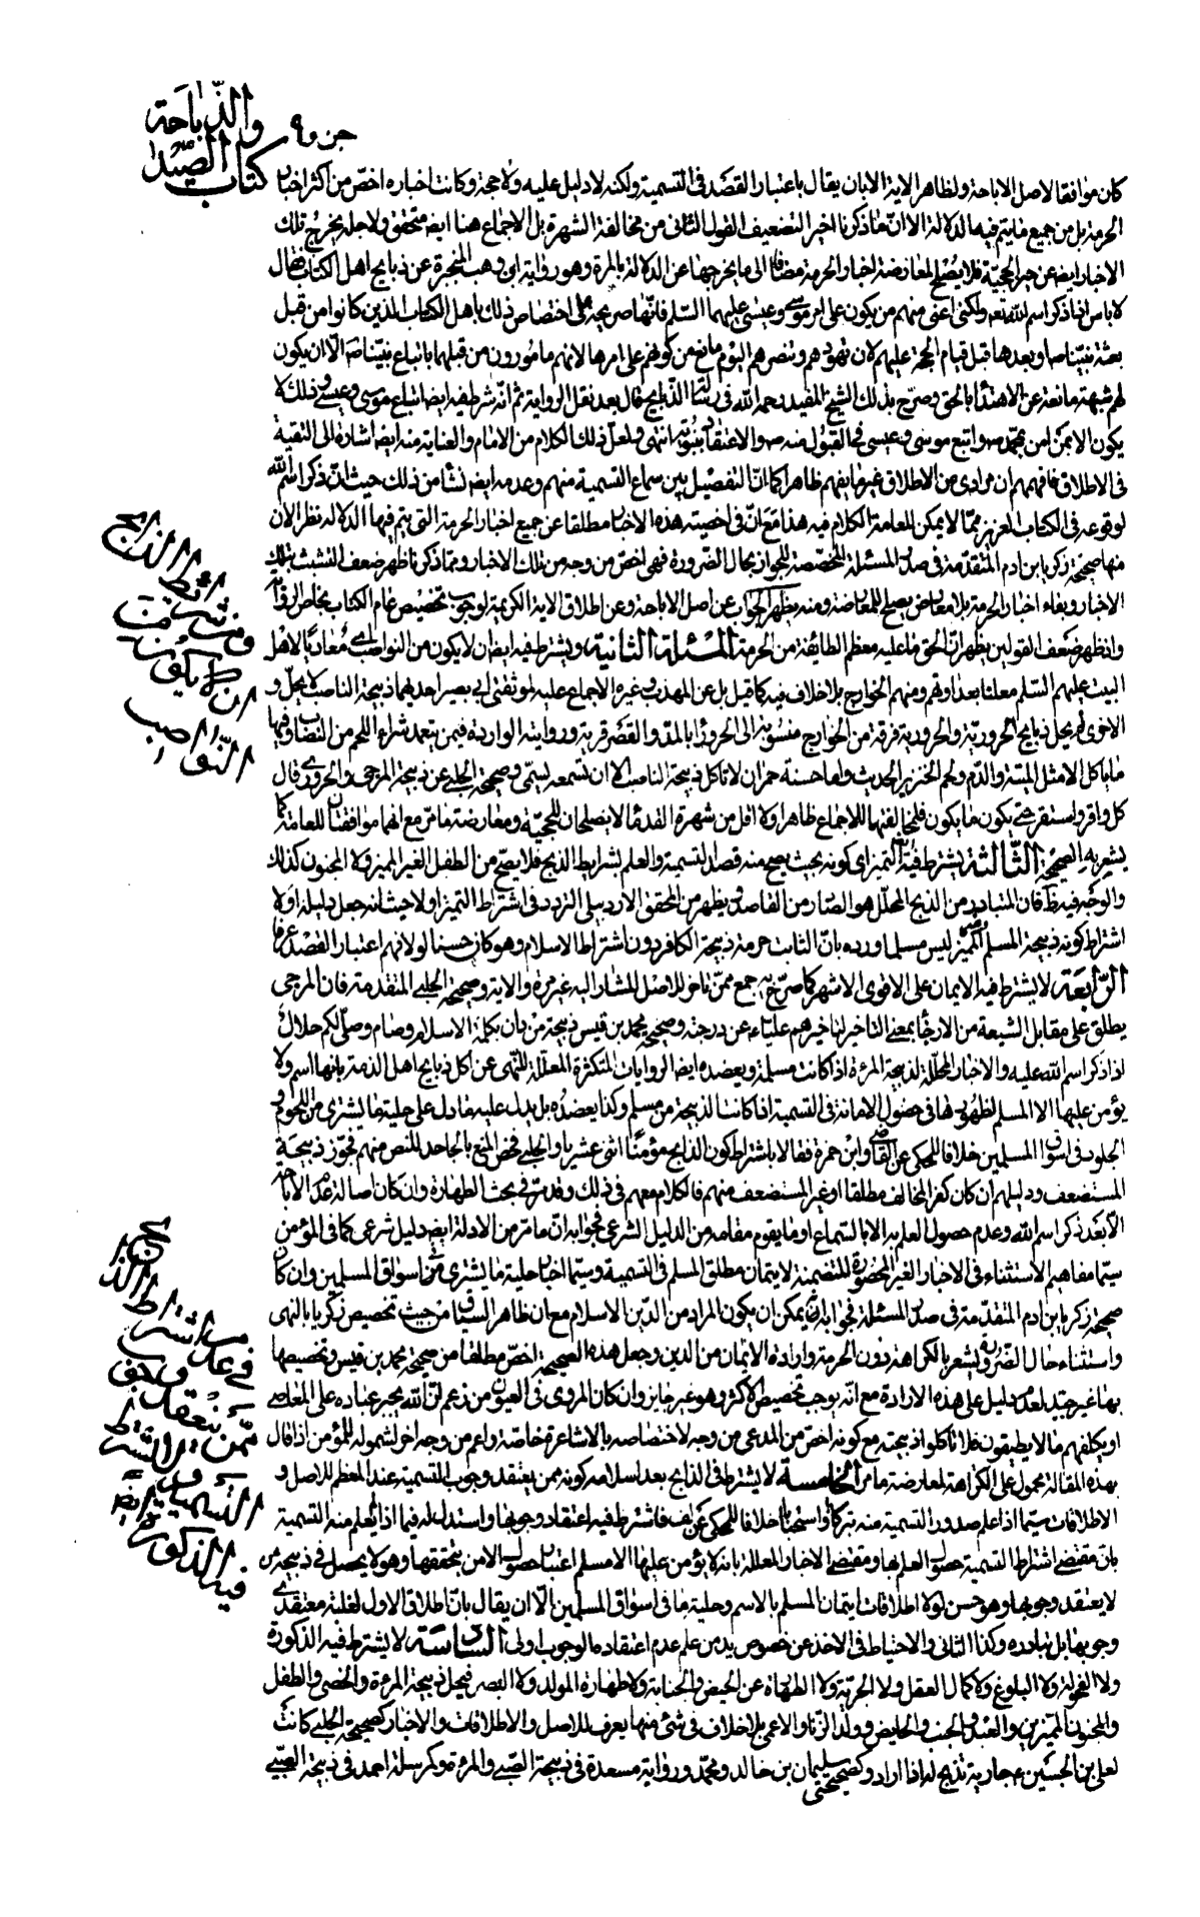 والذباحة
كتاب الصيد
كان موافقا لاصل الاباحة ولظاهر الاية الا بان يقال باعتبار القصد فى التسمية ولكنه لا دليل عليه ولا حجة وكانت اخباره اخص من اكثر اخبار
الحرمة بل من جميع ما يتم فيه الدلالة الا ان ما ذكرنا اخيرا لتضعيف القول الثانى من مخالفة الشهرة بل الاجماع هنا ايضا متحقق ولاجله يخرج تلك
الاخبار ايضا عن حيز الحجية فلا يصلح لمعارضة اخبار الحرمة مضافا الى ما يخرجها عن الدلالة بالمرة وهو رواية ابن وهب المنجبرة عن ذبايح اهل الكتاب فقال
لا باس اذا ذكر اسم الله تعه ولكنى اعنى منهم من يكون على امر موسى وعيسى عليهما السلم فانها صريحة فى اختصاص ذلك باهل الكتاب الذين كانوا من قبل
بعثة نبينا ص او بعدها قبل قيام الحجة عليهم لان تهودهم وتنصرهم اليوم مانع من كونهم على امرها لانهم مامورون من قبلهما باتباع نبينا ص الا ان يكون
لهم شبهة مانعة عن الاهتداء بالحق وصرح بذلك الشيخ المفيد رحمه الله فى رسالة الذبايح قال بعد نقل الرواية ثم انه شرط فيه ايضا اتباع موسى وعيسى وذلك لا
يكون الا ممن امن بمحمد ص واتبع موسى وعيسى فى القبول منه ص والاعتقاد بنبوته انتهى ولعل ذلك الكلام من الامام والعناية منه ايضا اشارة الى التقية
فى الاطلاق فافهمهم ان مرادى من الاطلاق غير ما يفهم ظاهرا كما ان التفصيل بين سماع التسمية منهم وعدمه ايضا نشأ من ذلك حيث ان ذكر اسم الله
لوقوعه فى الكتاب العزيز مما لا يمكن للعامة الكلام فيه هذا مع ان فى اخصية هذه الاخبار مطلقا عن جميع اخبار الحرمة التى يتم فيها الدلالة نظرا لان
منها صحيحة زكريا بن ادم المتقدمة فى صدر المسئلة المخصصة للجواز بحال الضرورة فهى اخص من وجه من تلك الاخبار ومما ذكرنا ظهر ضعف التشبث بتلك
الاخبار وبقاء اخبار الحرمة بلا معارض يصلح للمعارضة ومنه يظهر الجواب عن اصل الاباحة وعن اطلاق الاية الكريمة لوجوب تخصيص عام الكتاب بخاص الرواية
واذ ظهر ضعف القولين يظهر ان الحق ما عليه معظم الطايفة من الحرمة المسئلة الثانية ويشترط فيه ايضا ان لا يكون من النواصب اى معاديا لاهل
البيت عليهم السلم معلنا بعداوتهم ومنهم الخوارج بلا خلاف فيه كما قيل بل عن المهذب وغيره الاجماع عليه لموثقتى ابى بصير احدهما ذبيحة الناصب لا يحل و
الاخرى لم يحل ذبايح الحرورية والحرورية فرقة من الخوارج منسوبة الى الحروراء بالمد والقصر قرية وروايته الواردة فيمن يتعمد شراء اللحم من النصاب وفيها
ما ياكل الا مثل الميتة والدم ولحم الخنزير الحديث واما حسنة حمران لا تاكل ذبيحة الناصب الا ان تسمعه يسمى وصحيحة الحلبى عن ذبيحة المرجى والحرورى قال
كل وقر واستقر حتى يكون ما يكون فلمخالفتهما للاجماع ظاهرا ولا اقل من شهرة القدماء لا يصلحان للحجية ومعارضة ما مر مع انهما موافقتان للعامة كما
يشعر به الصحيحة الثالثة يشترط فيه التميز اى كونه بحيث يصح منه قصد التسمية والعلم بشرايط الذبح فلا يصح من الطفل الغير المميز ولا المجنون كذلك
والوجه فيه ظ فان المتبادر من الذبح المحلل هو الصادر من القاصد ويظهر من المحقق الاردبيلى التردد فى اشتراط التميز اولا حيث انه جعل دليله اولا
اشتراط كونه ذبيحة المسلم وغير المميز ليس مسلما ورده بان الثابت حرمة ذبيحة الكافر دون اشتراط الاسلام وهو كان حسنا لولا انهم اعتبار القصد عرفا
الرابعة لا يشترط فيه الايمان على الاقوى الاشهر كما صرح به جمع ممن تاخر للاصل المشار اليه غير مرة والاية وصحيحة الحلبى المتقدمة فان المرجى
يطلق على مقابل الشيعة من الارجاء بمعنى التاخير لتاخيرهم عليا ع عن درجته وصحيحة محمد بن قيس ذبيحة من دان بكلمة الاسلام وصام وصلى لكم حلال
اذا ذكر اسم الله عليه والاخبار المحللة لذبيحة المرءة اذا كانت مسلمة ويعضده ايضا الروايات المتكثرة المعللة للنهى عن اكل ذبايح اهل الذمة بانها اسم ولا
يؤمن عليها الا المسلم لظهورها فى حصول الامانة فى التسمية اذا كانت الذبيحة من مسلم وكذا يعضده بل يدل عليه ما دل على حلية ما يشترى من اللحوم و
الجلود فى اسواق المسلمين خلافا للمحكى عن القاضى وابن حمزة فقالا باشتراط كون الذابح مؤمنا اثنى عشريا والحلبى فخص المنع بالجاحد للنص منهم فجوز ذبيحة
المستضعف ودليلهم ان كان كفر المخالف مطلقا او غير المستضعف منهم فالكلام معهم فى ذلك وقد مر فى بحث الطهارة وان كان اصالة عدم الاباحة
الا بعد ذكر اسم الله وعدم حصول العلم به الا بالسماع او ما يقوم مقامه من الدليل الشرعى فجوابه ان ما مر من الادلة ايضا دليل شرعى كما فى المؤمن
سيما مفاهيم الاستثناء فى الاخبار الغير المحصورة المتضمنة لايتمان مطلق المسلم فى التسمية وسيما اخبار حلية ما يشترى من اسواق المسلمين وان كان
صحيحة زكريا بن ادم المتقدمة فى صدر المسئلة فجوابه انه يمكن ان يكون المراد من الدين الاسلام مع ان ظاهر السياق من حيث تخصيص زكريا بالنهى
واستثناء حال الضرورة يشعر بالكراهة دون الحرمة وارادة الايمان من الدين وجعل هذه الصحيحة اخص مطلقا من صحيحة محمد بن قيس وتخصيصها
بها غير جيد لعدم دليل على هذه الارادة مع انه يوجب تخصيص الاكثر وهو غير جايز وان كان المروى فى العيون من زعم ان الله يجبر عباده على المعاصى
او يكلفهم ما لا يطيقون فلا تاكلوا ذبيحته مع كونه اخص من المدعى من وجه لاختصاصه بالاشاعرة خاصة واعم من وجه اخر لشموله للمؤمن اذا قال
بهذه المقالة محمول على الكراهة لمعارضة ما مر الخامسة لا يشترط فى الذابح بعد اسلامه كونه ممن يعتقد وجوب التسمية عند المعظم للاصل و
الاطلاقات سيما اذا علم صدور التسمية منه تبركا او استحبابا خلافا للمحكى عن لف فاشترط فيه اعتقاد وجوبها واستدل له فيما اذا لم يعلم منه التسمية
بان مقتضى اشتراط التسمية حصول العلم بها ومقتضى الاخبار المعللة بانه لا يؤمن عليها الا مسلم اعتبار حصول الامن بتحققها وهو لا يحصل فى ذبيحة من
لا يعتقد وجوبها وهو حسن لولا اطلاقات ايتمان المسلم بالاسم وحلية ما فى اسواق المسلمين الا ان يقال بان اطلاق الاول لغلبة معتقدى
وجوبها بل تبادره وكذا الثانى والاحتياط فى الاخذ عن خصوص يد من علم عدم اعتقاده بالوجوب اولى السادسة لا يشترط فيه الذكورة
ولا الفحولة ولا البلوغ ولا كمال العقل ولا الحرية ولا الطهارة عن الحيض والجنابة ولا طهارة المولد ولا البصر فيحل ذبيحة المرءة والخصى والطفل
والمجنون المميزين والعبد والجنب والحايض وولد الزنا والاعمى بلا خلاف فى شئ منها يعرف للاصل والاطلاقات والاخبار كصحيحة الحلبى كانت
لعلى بن الحسين ع جارية تذبح له اذا اراد وكصحيحتى سليمان بن خالد ومحمد ورواية مسعدة فى ذبيحة الصبى والمرءة ومرسلة احمد فى ذبيحة الصبى
ومن شرائط الذابح
ان لا يكون من
النواصب
فى عدم اشتراط الذابح
ممن يعتقد وجوب
التسمية
فيه الذكورة